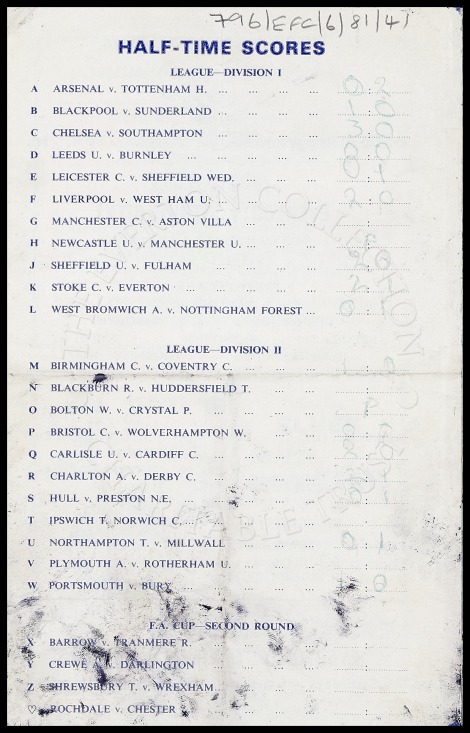 796/EFC/6/81/41
HALF-TIME SCORES
LEAGUE—DIVISION I
A ARSENAL v. TOTTENHAM H. ... ... ... ... 0 : 2
B BLACKPOOL v. SUNDERLAND ... ... ... ... 1 : 0
C CHELSEA v. SOUTHAMPTON ... ... ... ... 3 : 0
D LEEDS U. v. BURNLEY ... ... ... ... ... 0 : 0
E LEICESTER C. v. SHEFFIELD WED. ... ... ...
F LIVERPOOL v. WEST HAM U. ... ... ... 2 : 0
G MANCHESTER C. v. ASTON VILLA ... ... ...
H NEWCASTLE U. v. MANCHESTER U. ... ... ...
J SHEFFIELD U. v. FULHAM ... ... ... ...
K STOKE C. v. EVERTON ... ... ... ... ...
L WEST BROMWICH A. v. NOTTINGHAM FOREST ...
LEAGUE—DIVISION II
M BIRMINGHAM C. v. COVENTRY C. ... ... ...
N BLACKBURN R. v. HUDDERSFIELD T. ... ...
O BOLTON W. v. CRYSTAL P. ... ... ... ...
P BRISTOL C. v. WOLVERHAMPTON W. ... ... ...
Q CARLISLE U. v. CARDIFF C. ... ... ... ...
R CHARLTON A. v. DERBY C. ... ... ... ...
S HULL v. PRESTON N.E. ... ... ... ... ...
T IPSWICH T. NORWICH C. ... ... ... ...
U NORTHAMPTON T. v. MILLWALL ... ... ... 0 : 1
V PLYMOUTH A. v. ROTHERHAM U. ... ... ...
W PORTSMOUTH v. BURY ... ... ... ... ...
F.A. CUP—SECOND ROUND
X BARROW v. TRANMERE R. ... ... ... ...
Y CREWE A. v. DARLINGTON ... ... ... ...
Z SHREWSBURY T. v. WREXHAM ... ... ... ...
♡ ROCHDALE v. CHESTER ... ... ... ...
THE EVERTON COLLECTION CHARITABLE TRUST